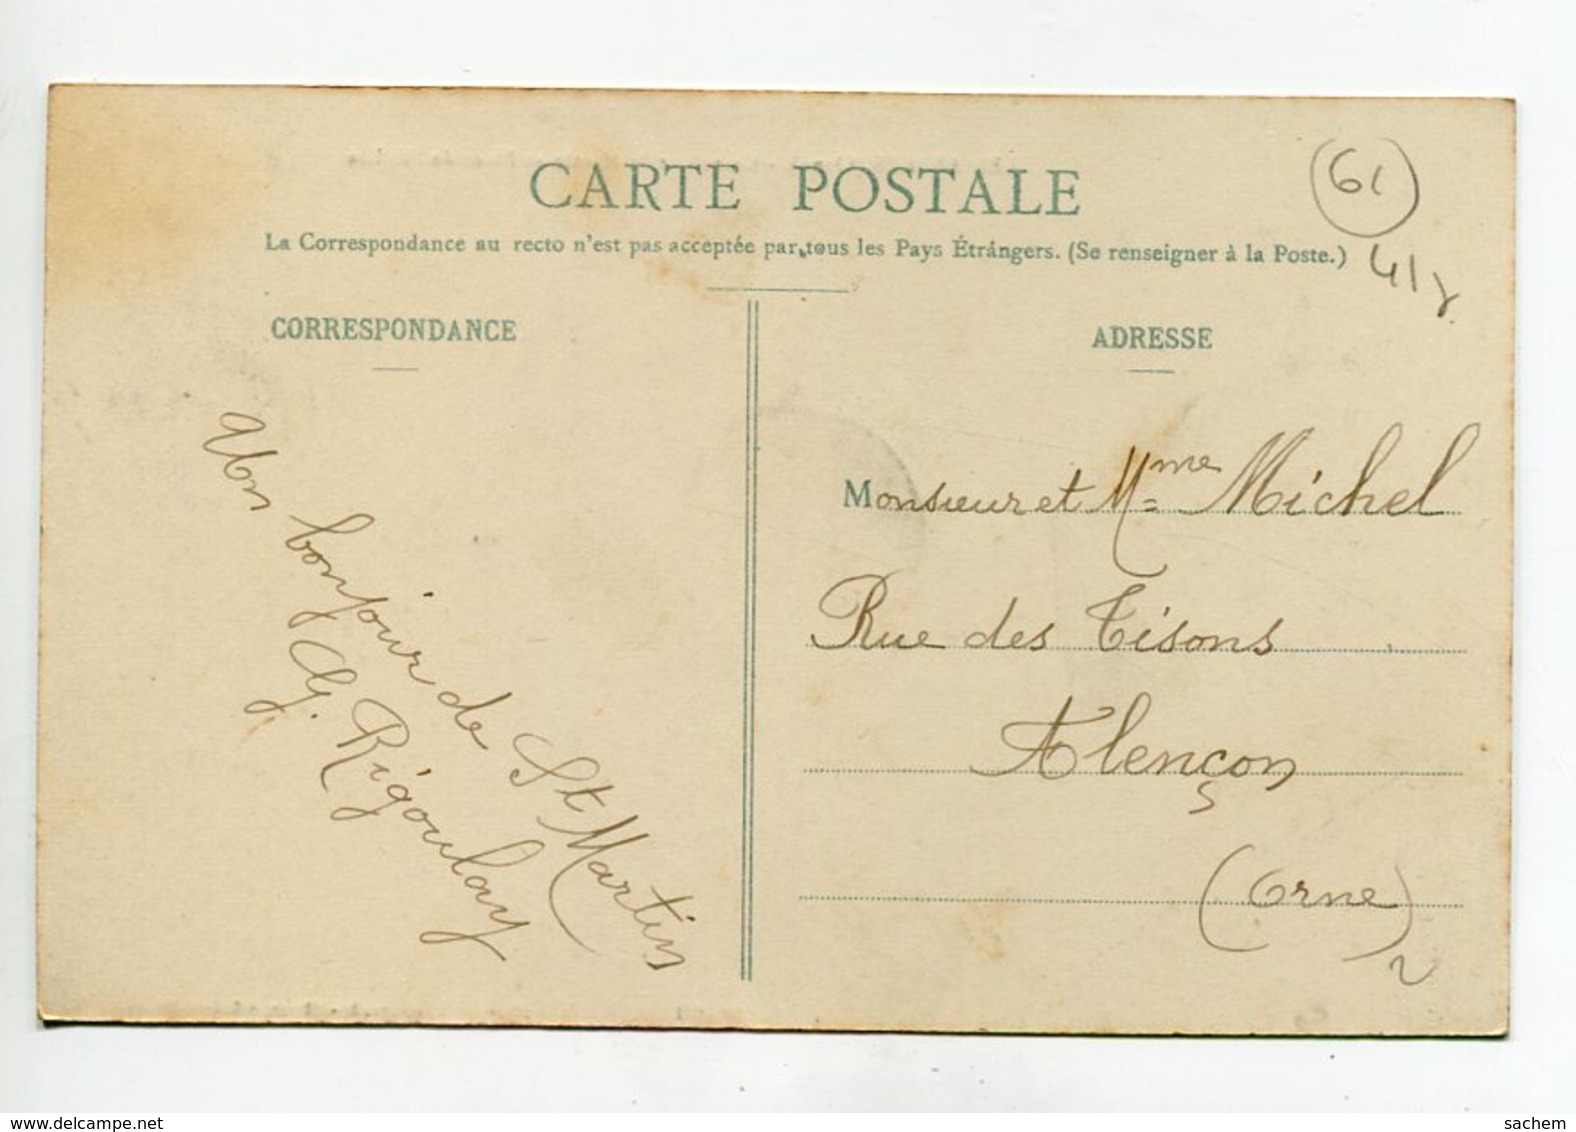 CARTE POSTALE
La Correspondance au recto n'est pas acceptée par tous les Pays Étrangers. (Se renseigner à la Poste.)
61
CORRESPONDANCE
Un bonjour de St Martin
G. Rigoulay
ADRESSE
Monsieur et Mme Michel
Rue des Tisons
Alençon
(Orne)
www.delcampe.net
sachem